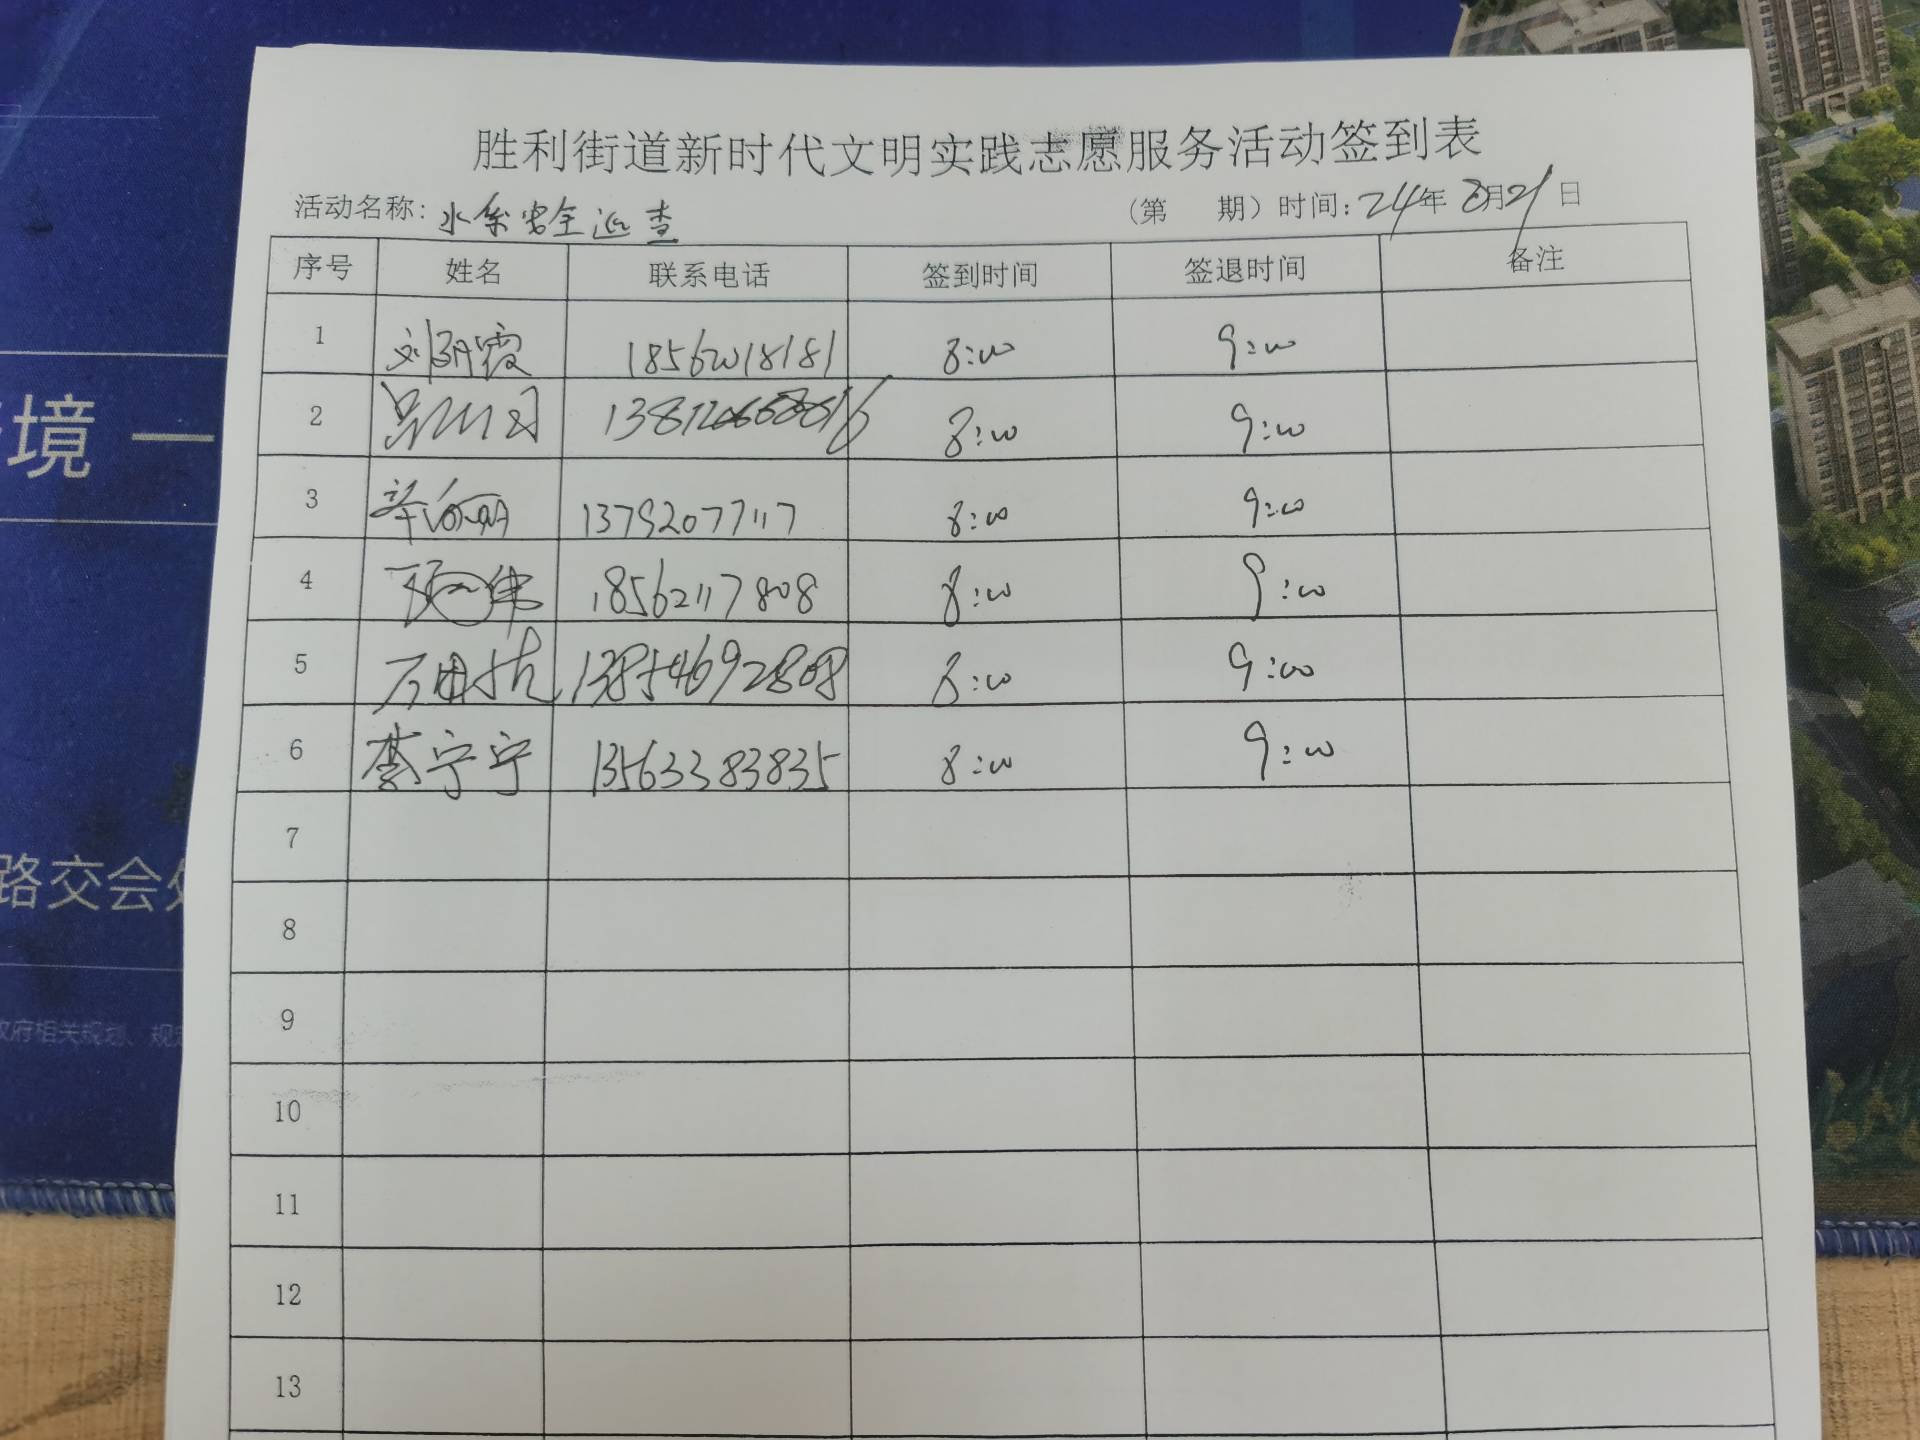 胜利街道新时代文明实践志愿服务活动签到表
活动名称：水系安全巡查 （第 期）时间：24年8月21日
序号 姓名 联系电话 签到时间 签退时间 备注
1 刘丽霞 18562018181 8:00 9:00
2 8:00 9:00
3 13792077117 8:00 9:00
4 18562117808 8:00 9:00
5 13854692808 8:00 9:00
6 李宁宁 13563383835 8:00 9:00
7
8
9
10
11
12
13
境 一
路交会处
政府相关规划、规定